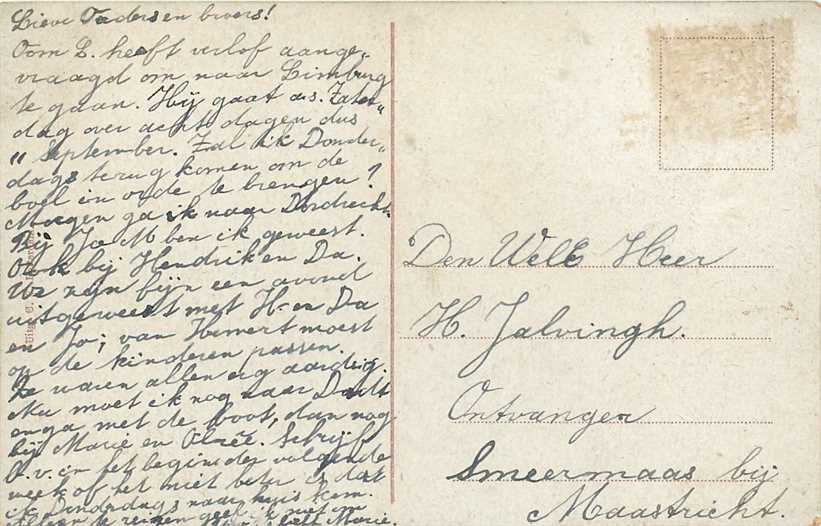 Lieve Vader en broers!
Oom L. heeft verlof aange„
vraagd om naar Limburg
te gaan. Hij gaat a.s. Zater„
dag over acht dagen dus
11 September. Zal ik Donder„
dags terug komen om de
boel in orde te brengen?
Morgen ga ik naar Dordrecht.
Bij Jo M ben ik geweest.
Ook bij Hendrik en Da.
We zijn bijn een avond
uitgeweest met H. en Da
en Jo; van Hemert moest
op de kinderen passen.
Ze waren allen erg aardig.
Nu moet ik nog naar Dordt
en ga met de boot, dan nog
bij Marie en Schrijf
a.v. in het begin der volgende
week of het niet beter is dat
ik Donderdags naar huis kom.
Alleen te reizen geef ik niet om
Marie.
Den WelE Heer
H. Jalvingh.
Ontvanger
Smeermaas bij
Maastricht.